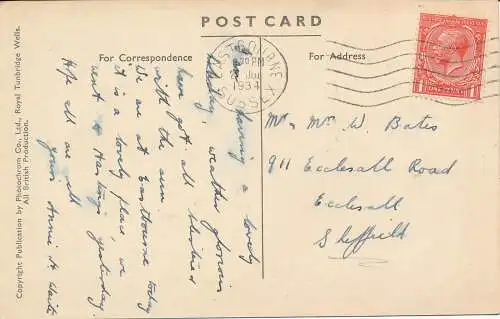 POST CARD
For Correspondence
For Address
EASTBOURNE
30 PM
1934
SUSSEX
ONE PENNY
having a lovely
Holiday, weather glorious
have got all blistered
with the sun
We are at Eastbourne today
it is a lovely place, we
went to Hastings yesterday.
Hope all are well
yours Annie H Waite
Mr Mrs W. Bates
911 Ecclesall Road
Ecclesall
Sheffield
Copyright Publication by Photochrom Co., Ltd., Royal Tunbridge Wells.
All British Production.